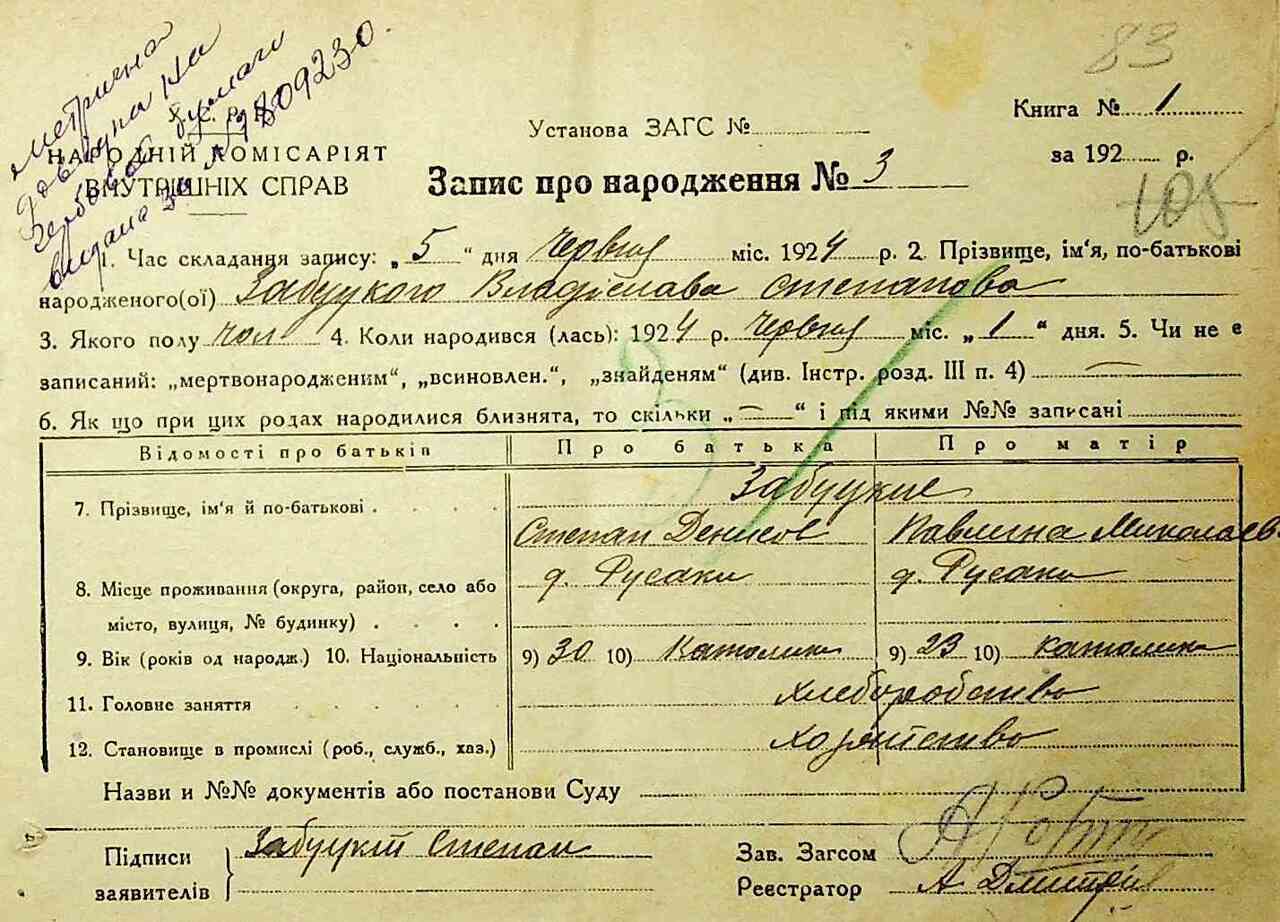 83
метрична
довідка на
гербовой бумаги
видана за № 3809230.
У. С. Р. Р.
НАРОДНІЙ КОМІСАРІЯТ
ВНУТРІШНІХ СПРАВ
Установа ЗАГС №
Запис про народження № 3
Книга № 1
за 192 р.
105
1. Час складання запису: „5“ дня Червня міс. 1924 р. 2. Прізвище, ім‘я, по-батькові
народженого(ої) Забуцкого Владіслава Степанова
3. Якого полу чол 4. Коли народився (лась): 1924 р. Червня міс. „1“ дня. 5. Чи не є
записаний: „мертвонародженим“, „всиновлен.“, „знайденям“ (див. Інстр. розд. III п. 4) —
6. Як що при цих родах народилися близнята, то скільки „—“ і під якими №№ записані
Відомості про батьків Про батька Про матір
Забуцкие
7. Прізвище, ім‘я й по-батькові . . . . Степан Денисов Павлина Миколаев.
8. Місце проживання (округа, район, село або д. Русаки д. Русаки
місто, вулиця, № будинку) . . . .
9. Вік (років од народж.) 10. Національність 9) 30 10) Католик 9) 23 10) католик
11. Головне заняття . . . . . хлеборобство
12. Становище в промислі (роб., служб., хаз.) хозяйство
Назви и №№ документів або постанови Суду
Підписи
заявителів
Забуцкій Степан
Зав. Загсом
Реєстратор А